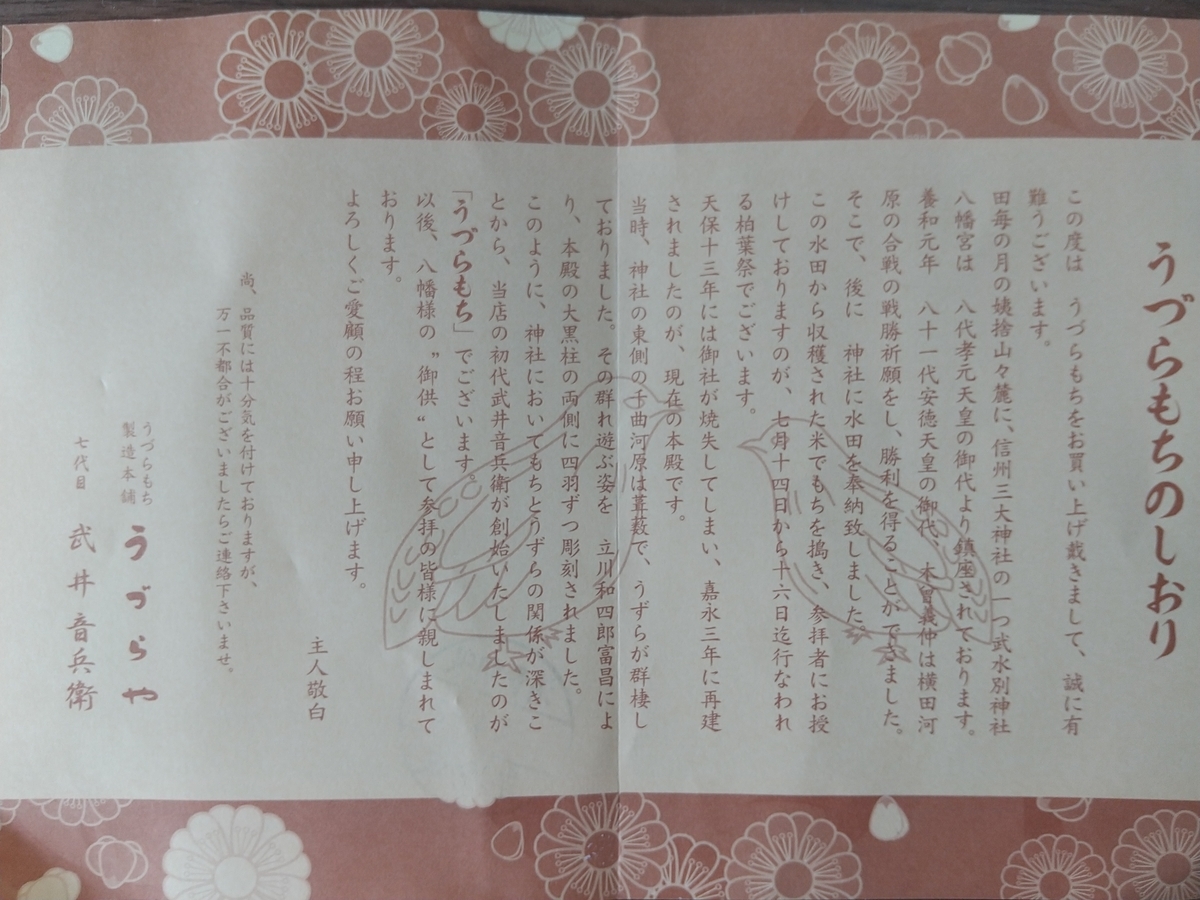 うづらもちのしおり
この度は　うづらもちをお買い上げ戴きまして、誠に有
難うございます。
田毎の月の姨捨山々麓に、信州三大神社の一つ武水別神社
八幡宮は　八代孝元天皇の御代より鎮座されております。
養和元年　八十一代安徳天皇の御代、木曽義仲は横田河
原の合戦の戦勝祈願をし、勝利を得ることができました。
そこで、後に　神社に水田を奉納致しました。
この水田から収穫された米でもちを搗き、参拝者にお授
けしておりますのが、七月十四日から十六日迄行なわれ
る柏葉祭でございます。
天保十三年には御社が焼失してしまい、嘉永三年に再建
されましたのが、現在の本殿です。
当時、神社の東側の千曲河原は葺薮で、うずらが群棲し
ておりました。その群れ遊ぶ姿を　立川和四郎富昌によ
り、本殿の大黒柱の両側に四羽ずつ彫刻されました。
このように、神社においてもちとうずらの関係が深きこ
とから、当店の初代武井音兵衛が創始いたしましたのが
「うづらもち」でございます。
以後、八幡様の〝御供〟として参拝の皆様に親しまれて
おります。
よろしくご愛顧の程お願い申し上げます。
主人敬白
尚、品質には十分気を付けておりますが、
万一不都合がございましたらご連絡下さいませ。
うづらもち
製造本舗　うづらや
七代目　武井音兵衛